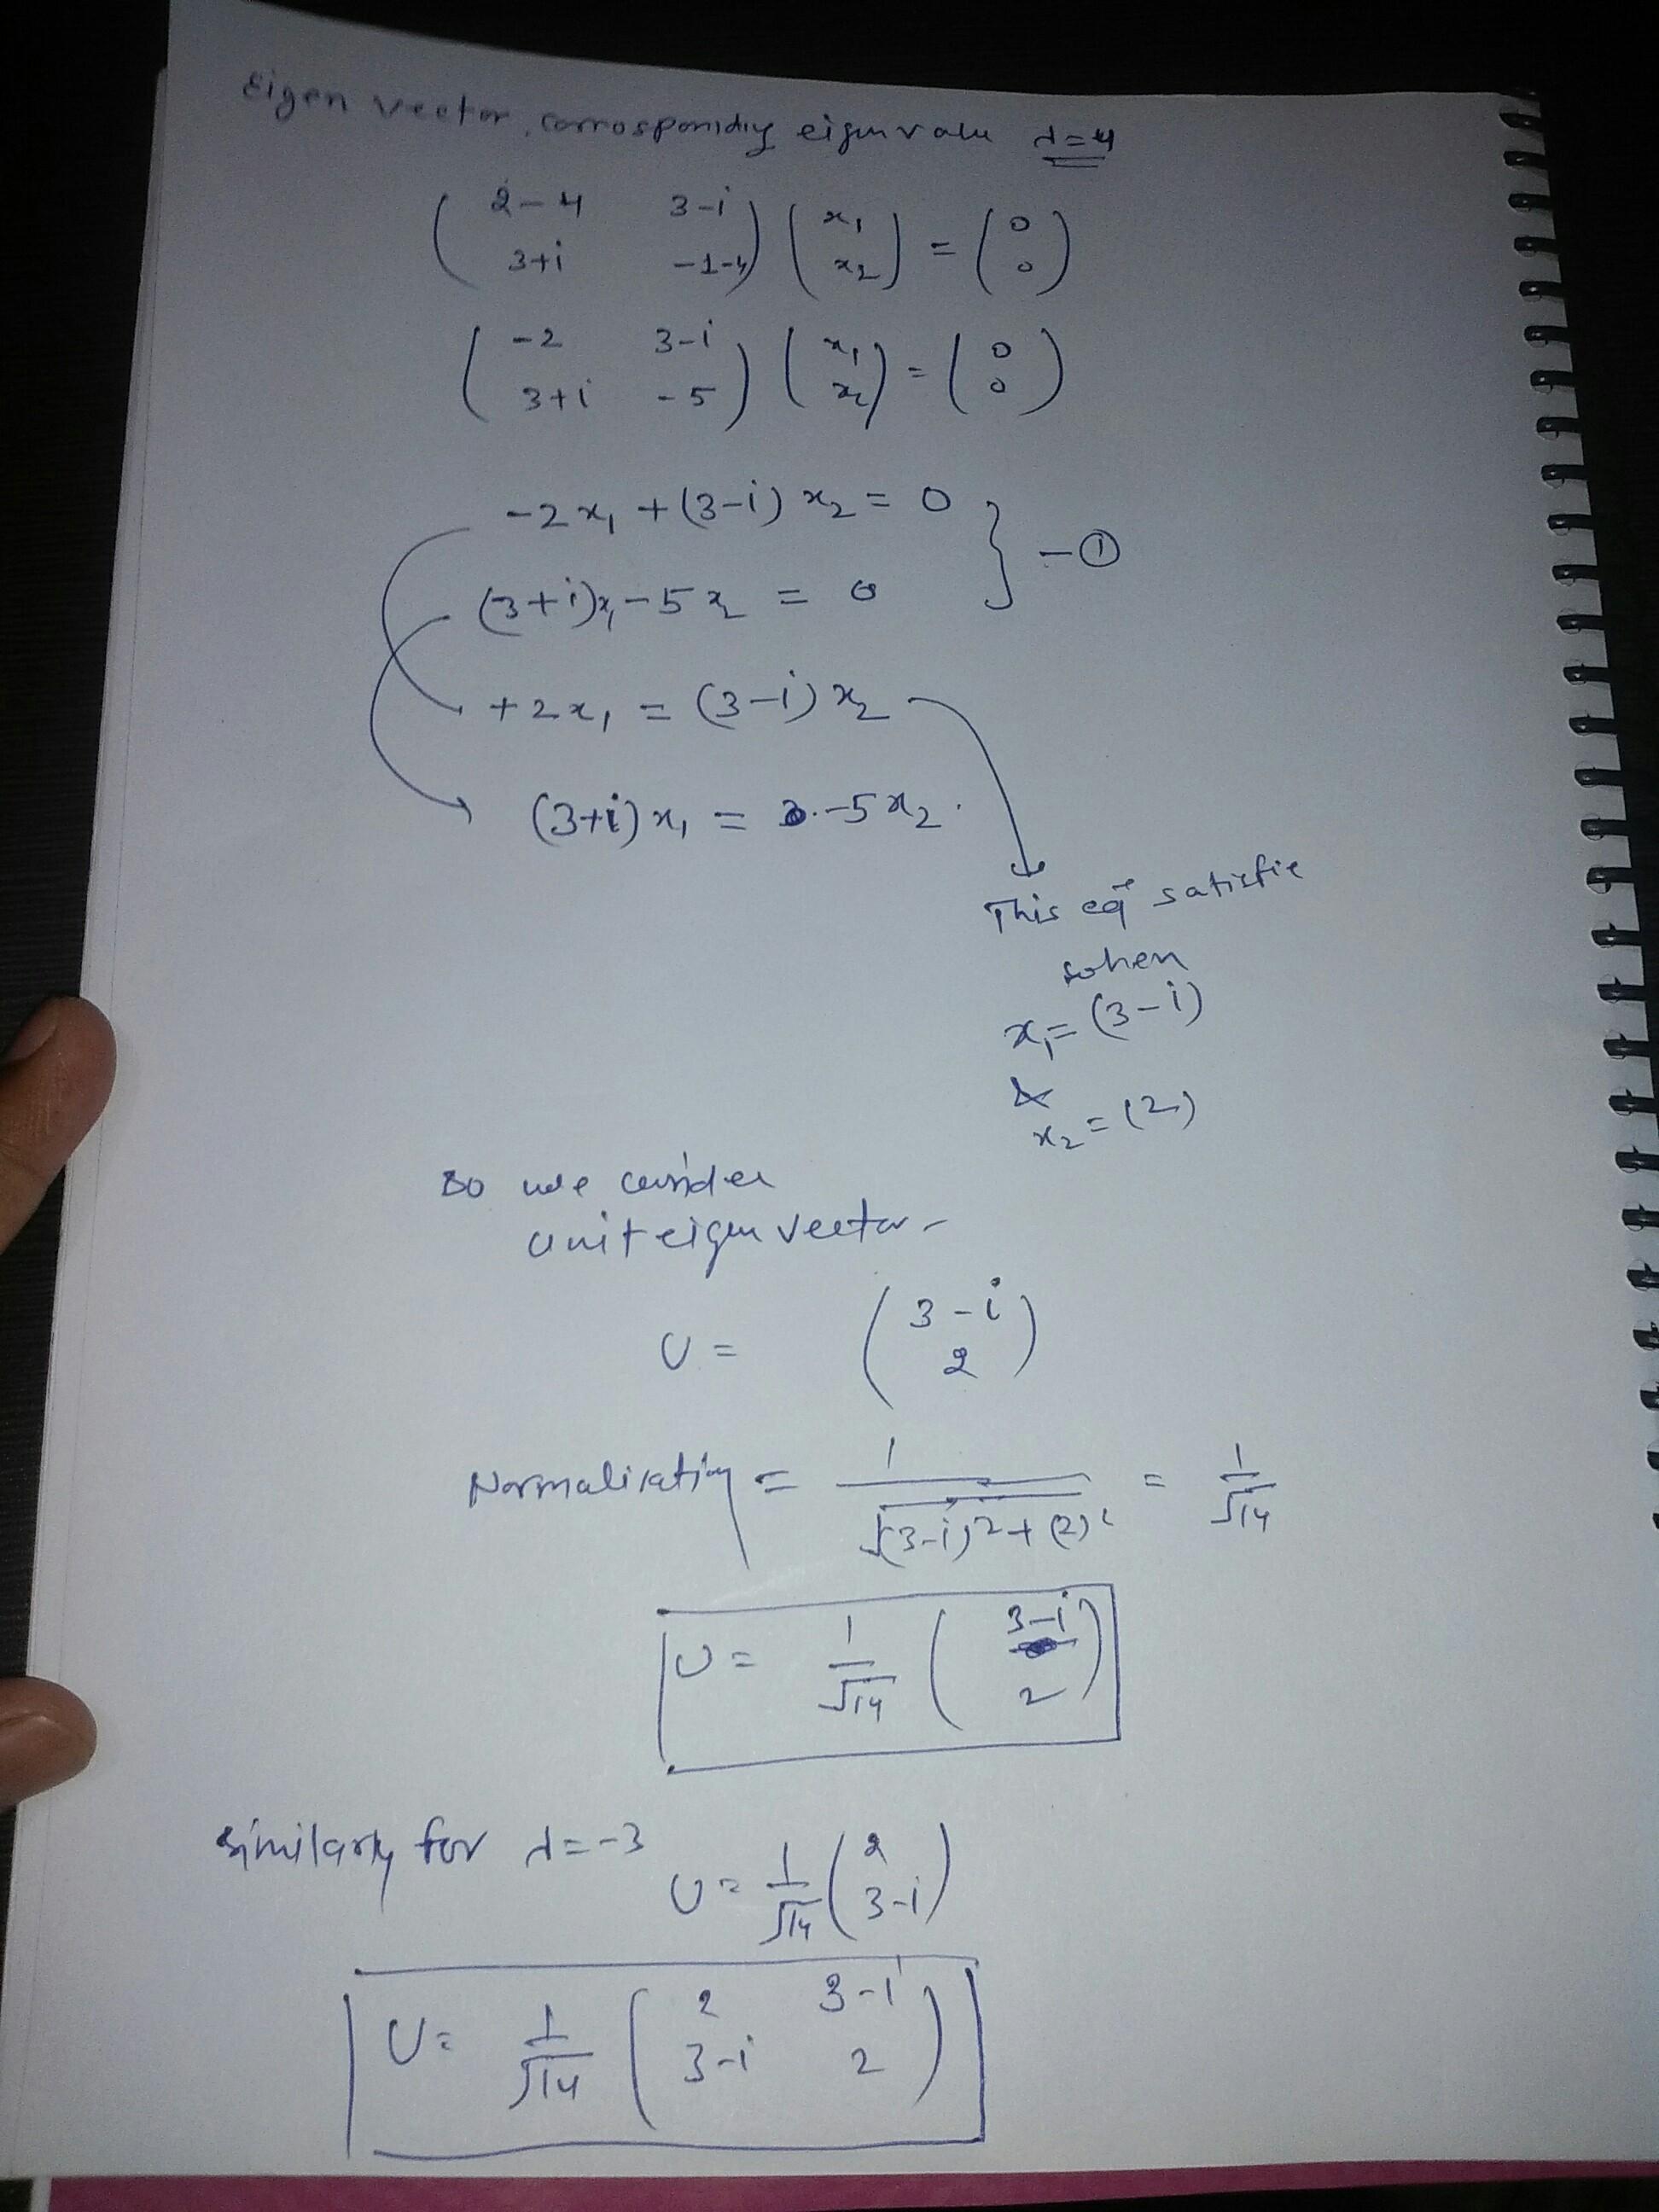 Eigen vector, corrosponidiy eigenvalu λ=4
( 2-4 3-i ) ( x₁ ) = ( 0 )
( 3+i -1-4 ) ( x₂ ) ( 0 )
( -2 3-i ) ( x₁ ) = ( 0 )
( 3+i -5 ) ( x₂ ) ( 0 )
-2x₁ + (3-i) x₂ = 0
} - ①
(3+i)x₁ - 5x₂ = 0
+2x₁ = (3-i) x₂
(3+i) x₁ = -5x₂.
This eqⁿ satisfie
when
x₁ = (3-i)
&
x₂ = (2)
So we consider
unit eigen vector -
U = ( 3-i )
( 2 )
Normalisation = 1/√(3-i)²+(2)² = 1/√14
U = 1/√14 ( 3-i )
( 2 )
Similarly for λ=-3
U = 1/√14 ( 2 )
( 3-i )
U = 1/√14 ( 2 3-i )
( 3-i 2 )